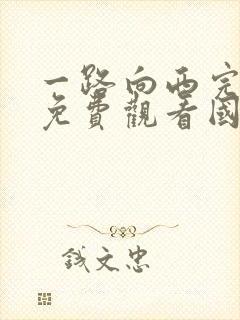 一路向西完
免費觀看國
钱文忠